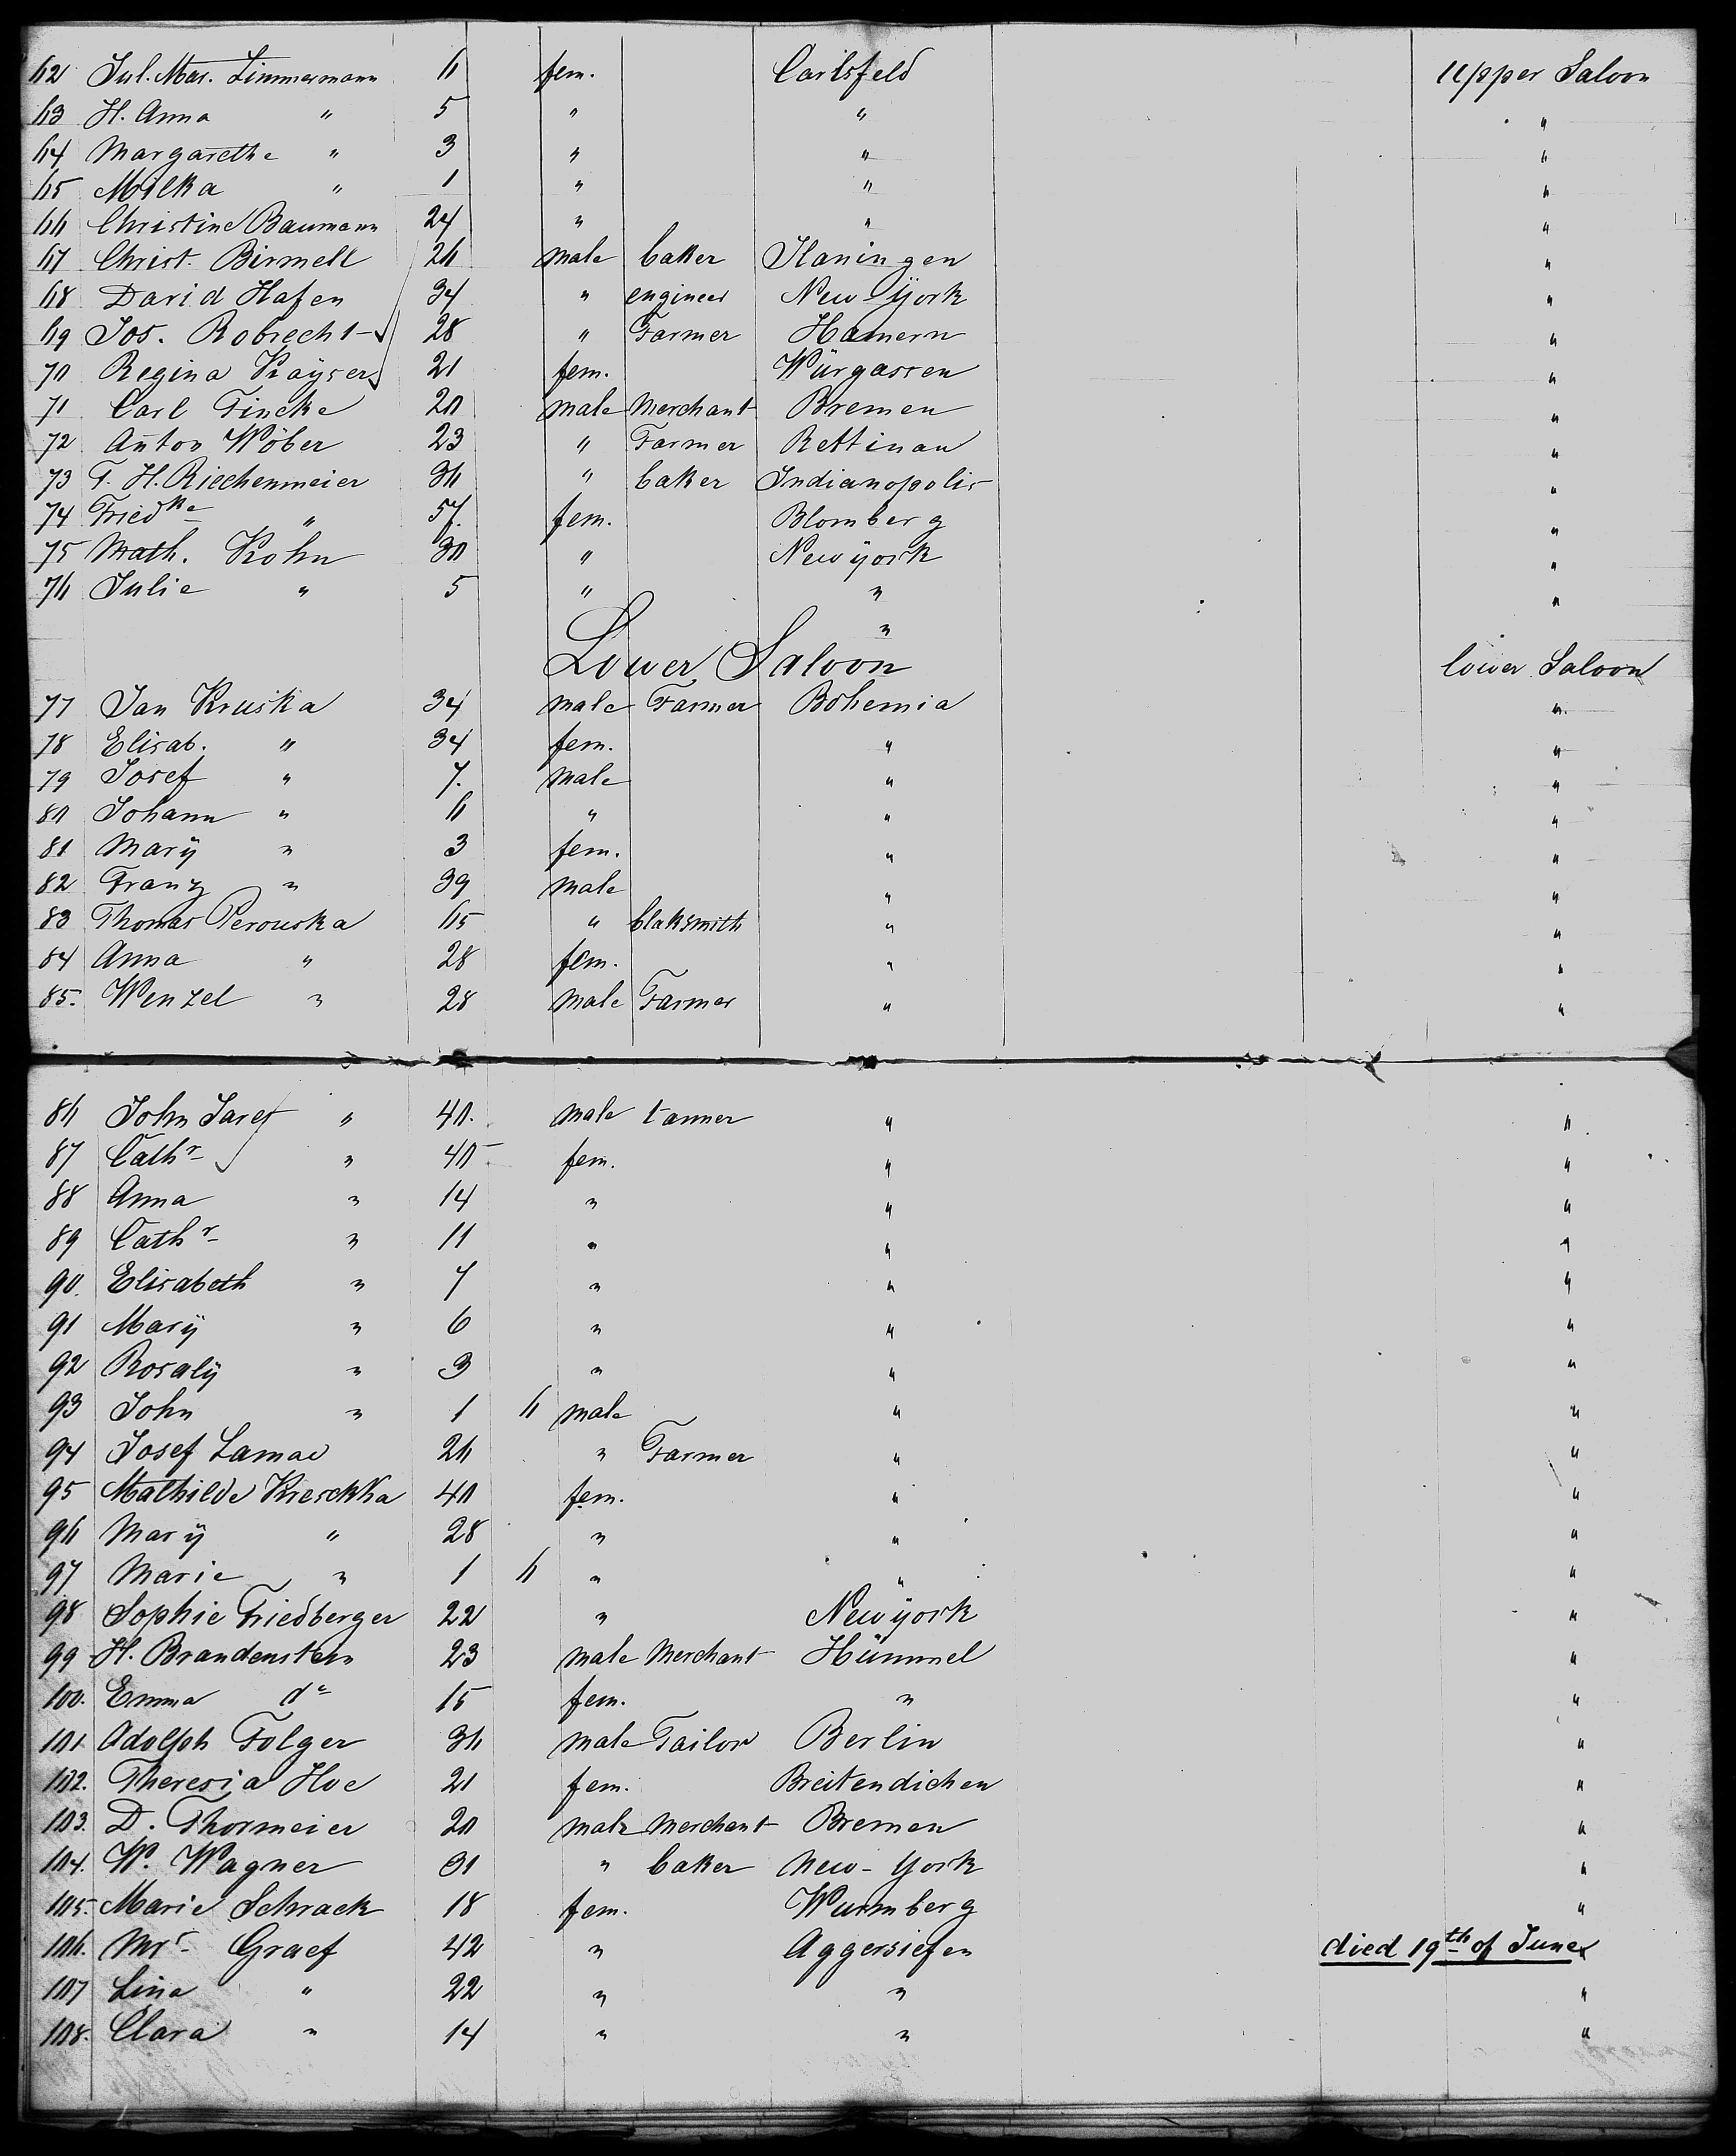 62 Jul. Mar. Zimmermann 6 fem. Carlsfeld Upper Saloon
63 H. Anna " 5 " " "
64 Margarethe " 3 " " "
65 Milka " 1 " " "
66 Christine Baumann 24 " " "
67 Christ. Birmell 26 male baker Haningen "
68 David Hafen 34 " engineer New-Ÿork "
69 Jos. Robrecht 28 " Farmer Hamern "
70 Regina Kayser 21 fem. Würgassen "
71 Carl Fincke 20 male Merchant Bremen "
72 Anton Wöber 23 " Farmer Rettinau "
73 F. H. Riechenmeier 36 " baker Indianopolis "
74 Friedke " 57. fem. Blomberg "
75 Math. Kohn 30 " Newÿork "
76 Julie " 5 " " "
"
Lower Saloon lower Saloon
77 Jan Kruska 34 male Farmer Bohemia "
78 Elisab. " 34 fem. " "
79 Josef " 7. male " "
80 Johann " 6 " " "
81 Marÿ " 3 fem. " "
82 Franz " 39 male " "
83 Thomas Perouska 65 " blaksmith " "
84 Anna " 28 fem. " "
85. Wenzel " 28 male Farmer " "
86 John Jares " 40. male tanner " "
87 Cathr " 40 fem. " "
88 Anna " 14 " " "
89 Cathr " 11 " " "
90. Elisabeth " 7 " " "
91 Marÿ " 6 " " "
92 Rosalÿ " 3 " " "
93 John " 1 6 male " "
94 Josef Lamac 26 " Farmer " "
95 Mathilde Kresckka 40 fem. " "
96 Marÿ " 28 " " "
97 Marie " 1 6 " " "
98 Sophie Friedberger 22 " Newÿork "
99 H. Brandenstein 23 male Merchant Hümmel "
100. Emma do 15 fem. " "
101 Adolph Folger 36 male Tailor Berlin "
102. Theresia Hoe 21 fem. Breitendichen "
103. D. Thormeier 20 male Merchant Bremen "
104. W. Wagner 31 " baker New-York "
105. Marie Schrack 18 fem. Wurmberg "
106. Mrs Graef 42 " Aggersiefen died 19th of June "
107 Lina " 22 " " "
108. Clara " 14 " " "